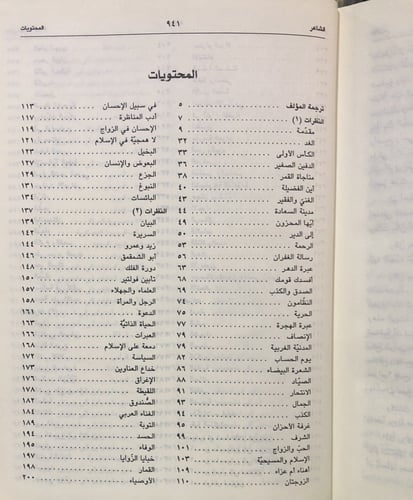 الشاعر ٩٤١ المحتويات
المحتويات
ترجمة المؤلف ٥
النظرات (١) ٧
مقدّمة ٩
الغد ٣٢
الكأس الأولى ٣٣
الدفين الصغير ٣٦
مناجاة القمر ٣٨
أين الفضيلة ٤٠
الغنيّ والفقير ٤٣
مدينة السعادة ٤٤
أيها المحزون ٤٩
إلى الدير ٥٠
الرحمة ٥٣
رسالة الغفران ٥٦
عبرة الدهر ٦٣
أفسدك قومك ٦٨
الصدق والكذب ٦٩
النظّامون ٧٤
الحرية ٧٥
عبرة الهجرة ٧٧
الإنصاف ٧٩
المدنيّة الغربية ٧٩
يوم الحساب ٨٢
الشعرة البيضاء ٨٦
الصيّاد ٨٨
الانتحار ٩١
الجمال ٩٣
الكذب ٩٤
غرفة الأحزان ٩٥
الشرف ٩٩
الحبّ والزواج ١٠١
الإسلام والمسيحية ١٠٣
أهناء أم عزاء ١٠٩
الزوجتان ١١٠
في سبيل الإحسان ١١٣
أدب المناظرة ١١٧
الإحسان في الزواج ١١٩
لا همجيّة في الإسلام ١٢١
البخيل ١٢٣
البعوض والإنسان ١٢٧
الجزع ١٢٩
النبوغ ١٣١
البائسات ١٣٤
النظرات (٢) ١٣٧
البيان ١٣٩
السريرة ١٤٢
زيد وعمرو ١٤٤
أبو الشمقمق ١٤٦
دورة الفلك ١٤٨
تأبين فولتير ١٥٠
العلماء والجهلاء ١٥٧
الرجل والمرأة ١٥٨
الدعوة ١٦١
الحياة الذاتيّة ١٦٣
العبرات ١٦٦
دمعة على الإسلام ١٦٨
السياسة ١٧٢
خداع العناوين ١٧٣
الإغراق ١٧٦
اللقيطة ١٧٨
الصُّندوق ١٨٢
الغناء العربي ١٨٤
التوبة ١٨٩
الحسد ١٩٤
الوفاء ١٩٥
خبايا الزّوايا ١٩٧
القمار ١٩٨
الأوصياء ٢٠٠